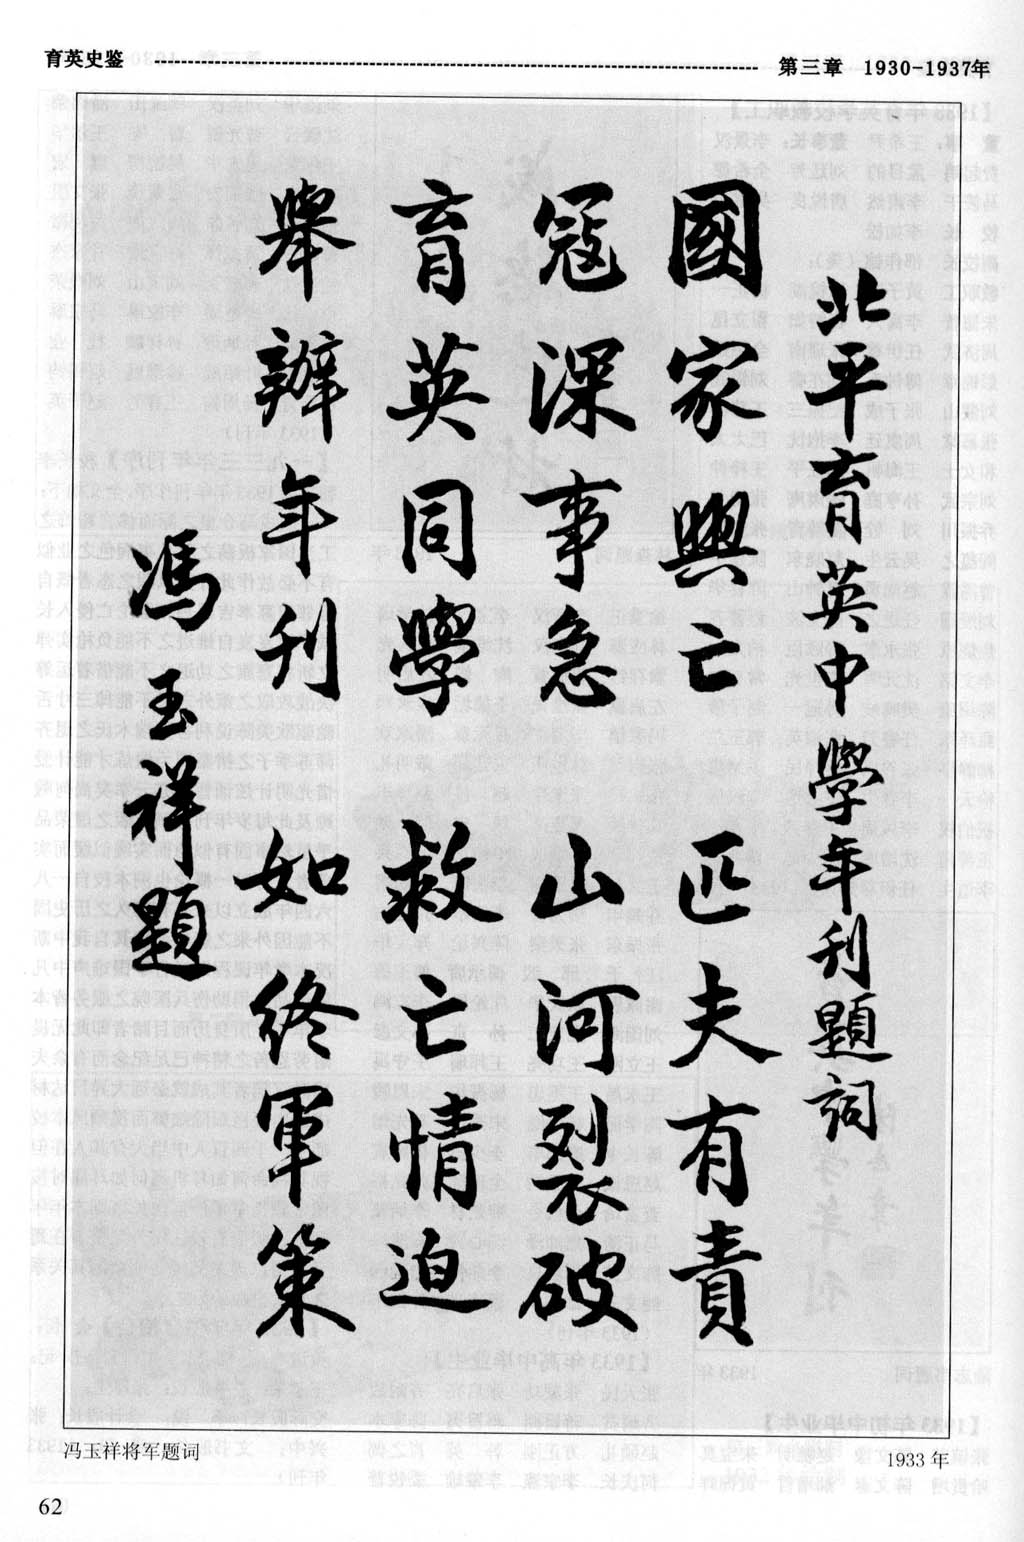 育英史鉴 第三章 1930-1937年
北平育英中學年刊題詞
國家興亡 匹夫有責
寇深事急 山河裂破
育英同學 救亡情迫
舉辦年刊 如終軍策
馮玉祥題
冯玉祥将军题词 1933年
62